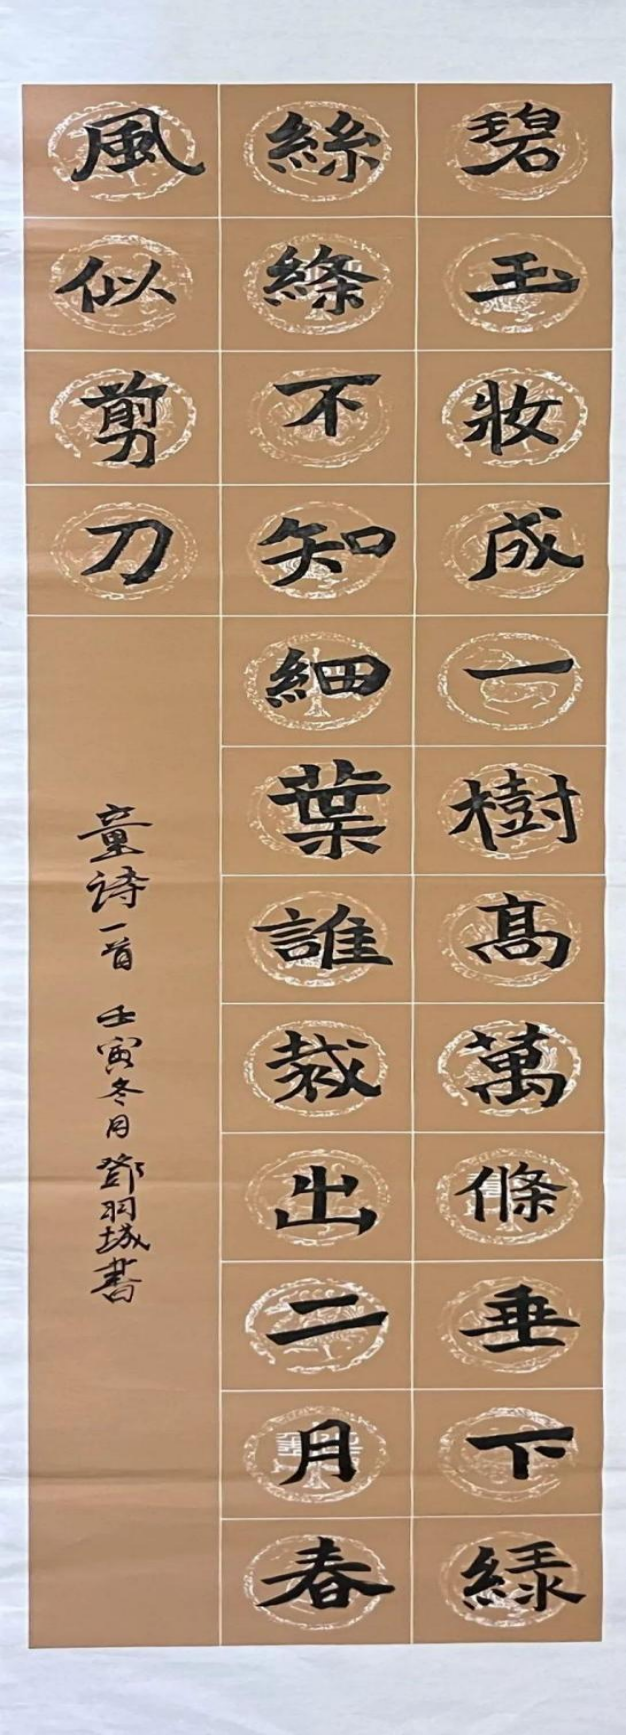 碧玉妝成一樹高萬條垂下緑
絲絛不知細葉誰裁出二月春
風似剪刀
童诗一首 壬寅冬月 鄧羽城書